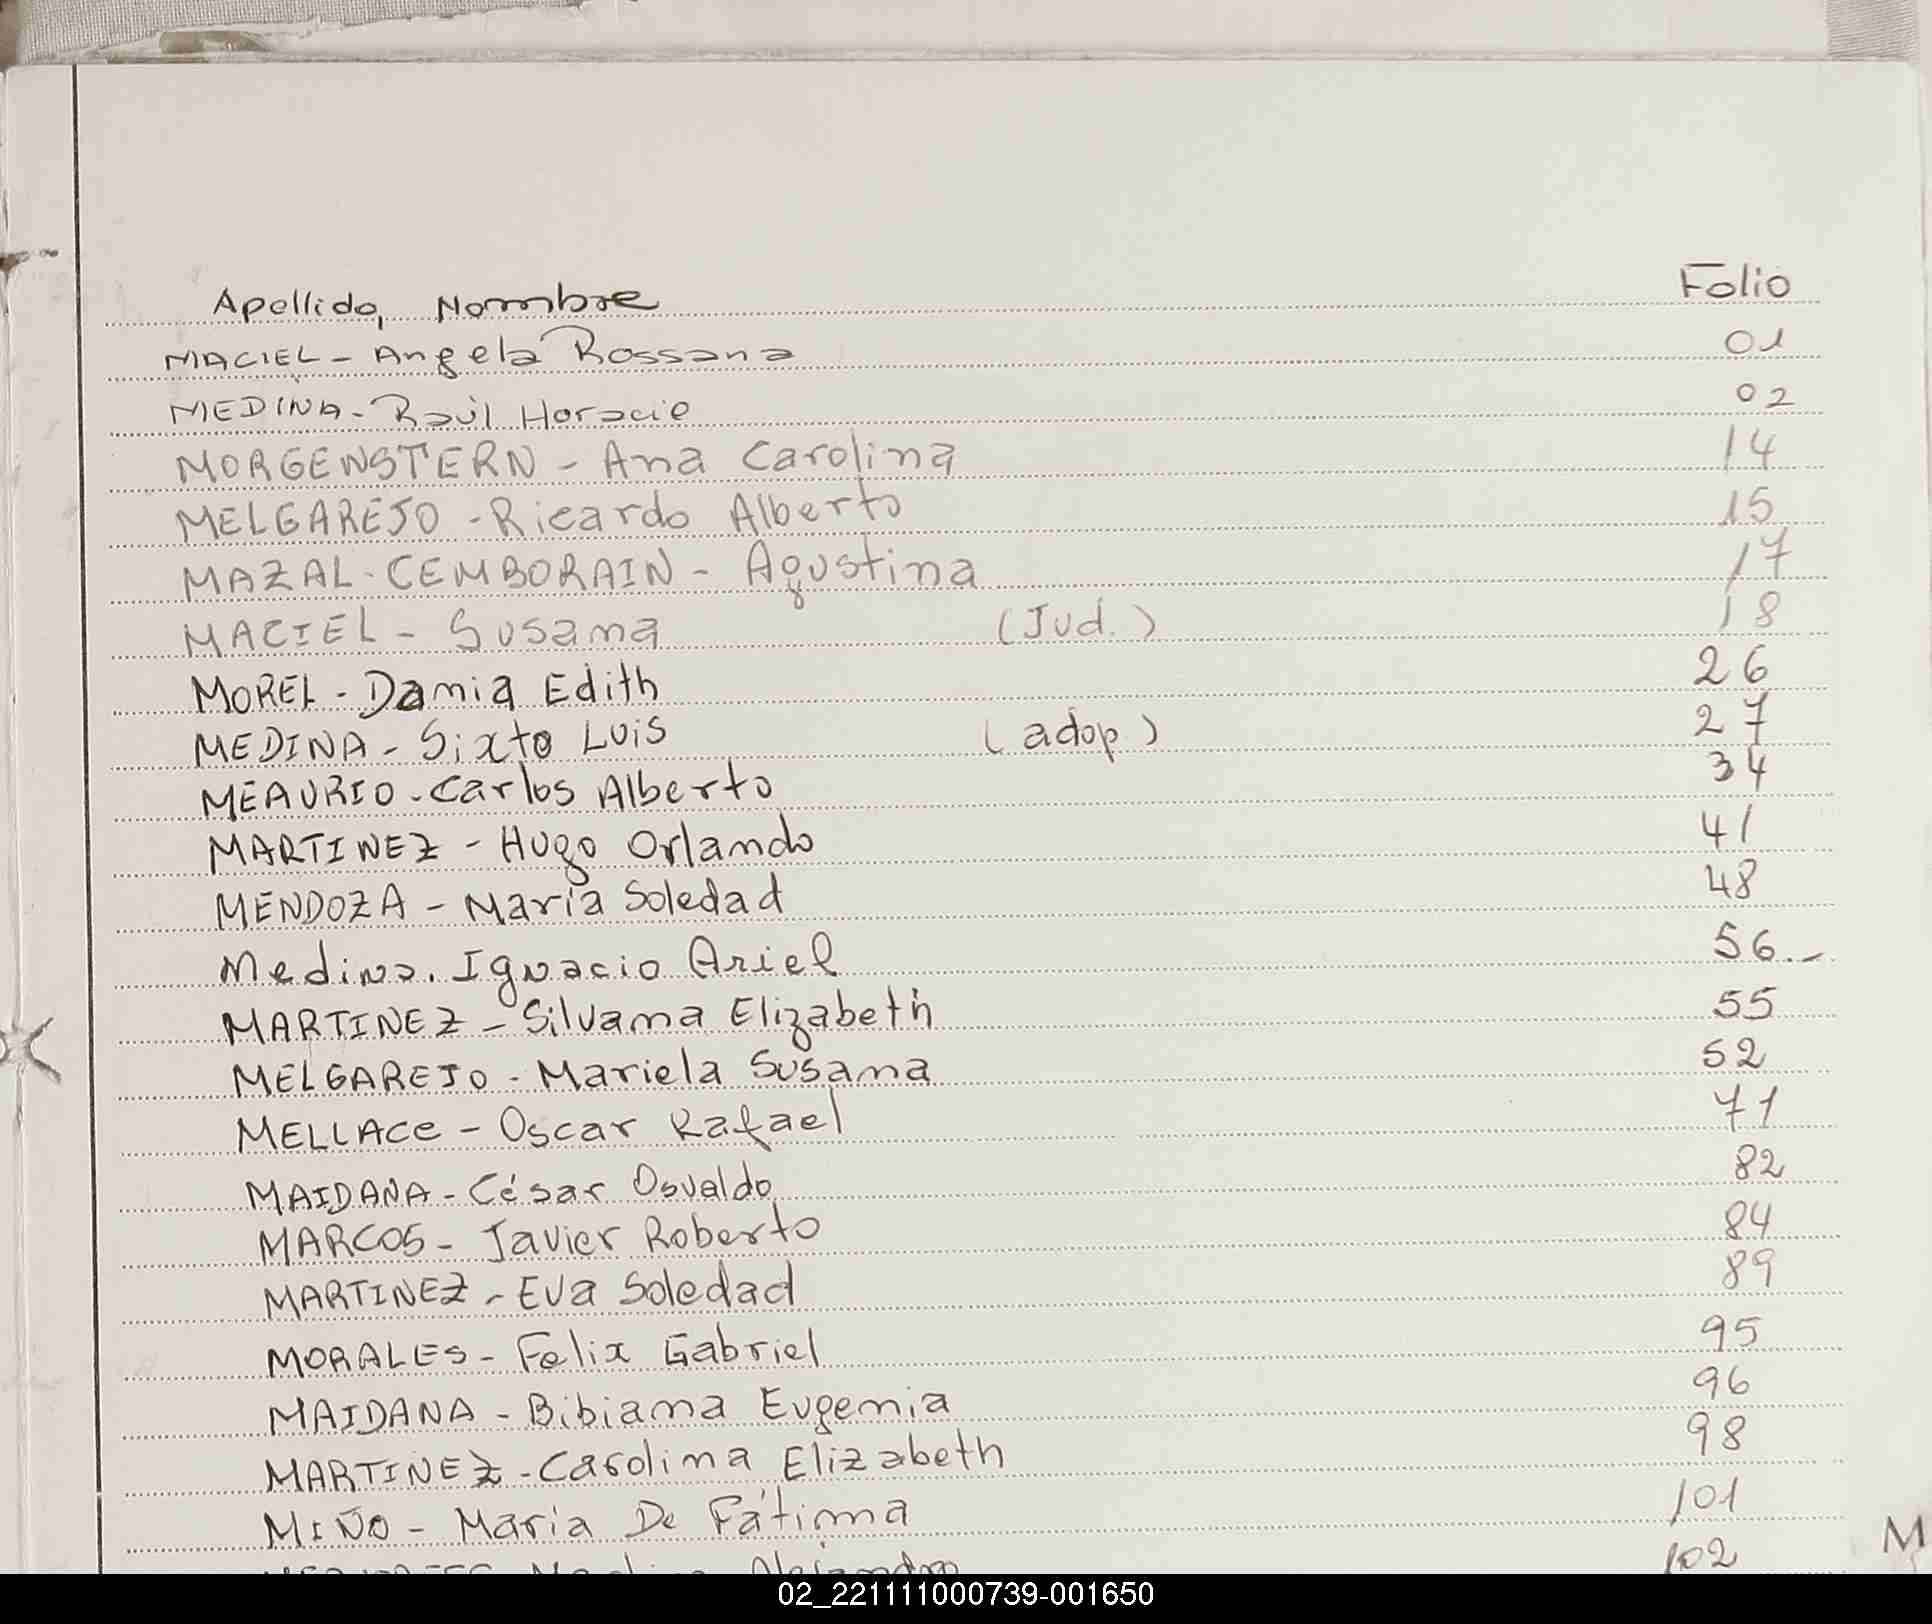 Apellido, Nombre Folio
MACIEL - Angela Rossana 01
MEDINA - Raúl Horacio 02
MORGENSTERN - Ana Carolina 14
MELGAREJO - Ricardo Alberto 15
MAZAL - CEMBORAIN - Agustina 17
MACIEL - Susana (Jud.) 18
MOREL - Damia Edith 26
MEDINA - Sixto Luis (adop) 27
MEAURIO - Carlos Alberto 34
MARTINEZ - Hugo Orlando 41
MENDOZA - María Soledad 48
Medina. Ignacio Ariel 56.-
MARTINEZ - Silvana Elizabeth 55
MELGAREJO - Mariela Susana 52
MELLACE - Oscar Rafael 71
MAIDANA - César Osvaldo 82
MARCOS - Javier Roberto 84
MARTINEZ - Eva Soledad 89
MORALES - Felix Gabriel 95
MAIDANA - Bibiana Eugenia 96
MARTINEZ - Carolina Elizabeth 98
MIÑO - María De Fátima 101
Alejandro 102
M
02_221111000739-001650